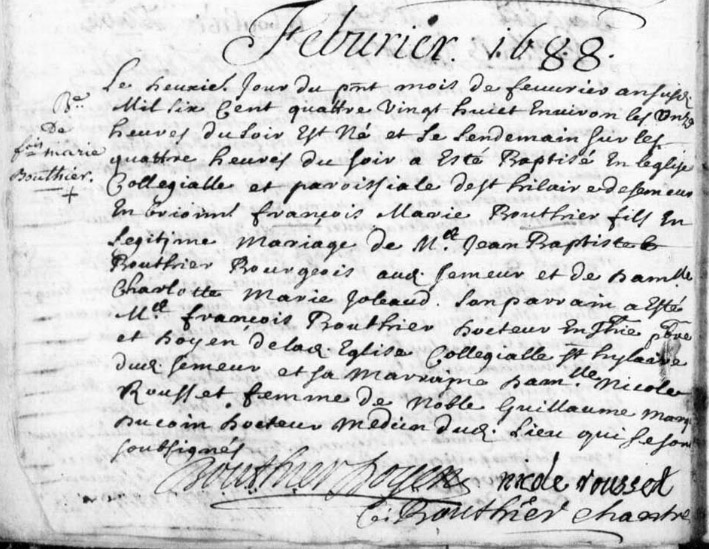 Feburier. 1688.
Le heuxiel Jour du pnt mois de feuurier an susd
Mil six Cent quattre vingt huict Enuiron les Unze
heures du soir Est Né et le Lendemain sur les
quattre heures du soir a Esté Baptisé En leglise
Collegialle et paroissiale de st hilaire de semeur
En brionnl françois Marie Bouthier fils En
Legitjme mariage de Mre Jean Baptiste
Bouthier Bourgeois aud semeur et de Damlle
Charlotte Marie Joleaud. son parrain a Esté
françois Bouthier Docteur En Thie pbre
et Doyen de lad Eglise Collegialle st hylaire
dud semeur et sa Marraine Damlle Nicole
Rousset femme de Noble Guillaume
Ducoin Docteur Medecin dud Lieu qui se sont
soubsignés
Be
De
fois marie
Bouthier.
+
Bouthier Doyen nicole rousset
Bouthier chantre